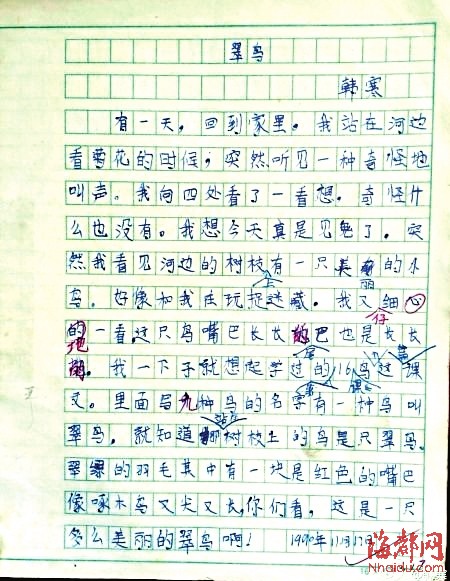 翠鸟
韩寒
有一天，回到家里。我站在河边
看菊花的时候；突然听见一种奇怪地
叫声。我向四处看了一看想。奇怪什
么也没有。我想今天真是见鬼了。突
然我看见河边的树枝上有一只美丽的小
鸟。好像和我在玩捉迷藏。我又仔细
地一看这只鸟嘴巴长长的尾巴也是长长
我一下子就想起学过的《16鸟》这课
文。里面写九种鸟的名字有一种鸟叫
翠鸟，就知道站在那树枝上的鸟是只翠鸟。
翠绿的羽毛其中有一块是红色的嘴巴
像啄木鸟又尖又长，你们看，这是一只
多么美丽的翠鸟啊！ 1990年11月17日
海都网
Nhaidu.com